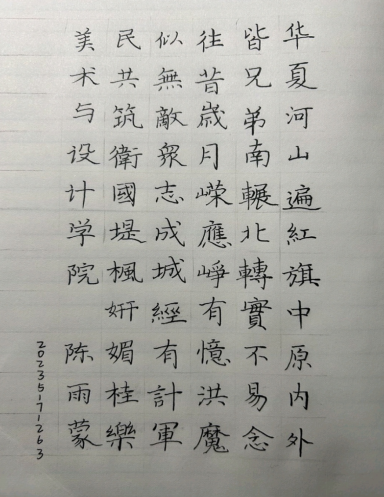 华夏河山遍紅旗中原内外
皆兄弟南輾北轉實不易念
往昔歲月嶸應崢有憶洪魔
似無敵衆志成城經有計軍
民共筑衛國堤楓妍媚桂樂
美术与设计学院 陈雨蒙
20235171263